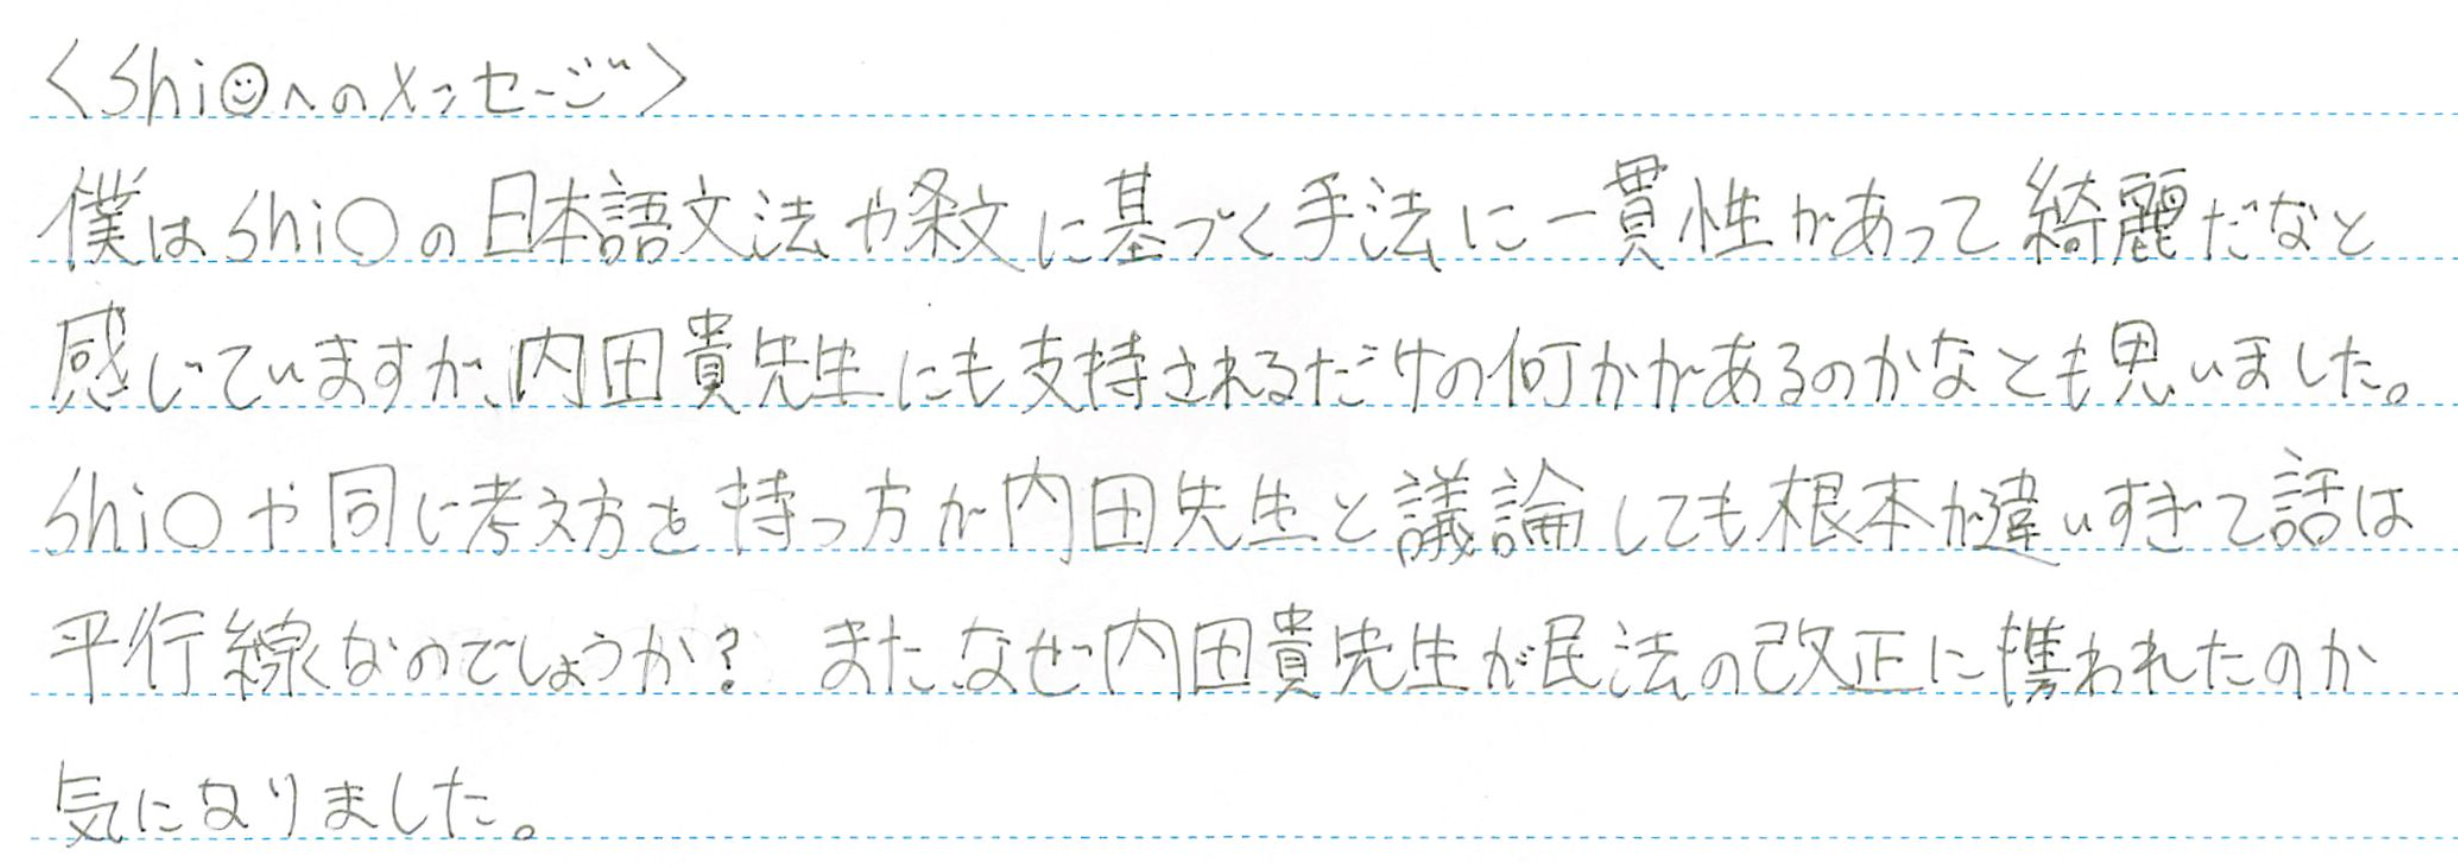 <Shi☺へのメッセージ>
僕はShi〇の日本語文法や条文に基づく手法に一貫性があって綺麗だなと
感じていますが、内田貴先生にも支持されるだけの何かがあるのかなとも思いました。
Shi〇や同じ考え方を持つ方が内田先生と議論しても根本が違いすぎて話は
平行線なのでしょうか? また、なぜ内田貴先生が民法の改正に携われたのか
気になりました。